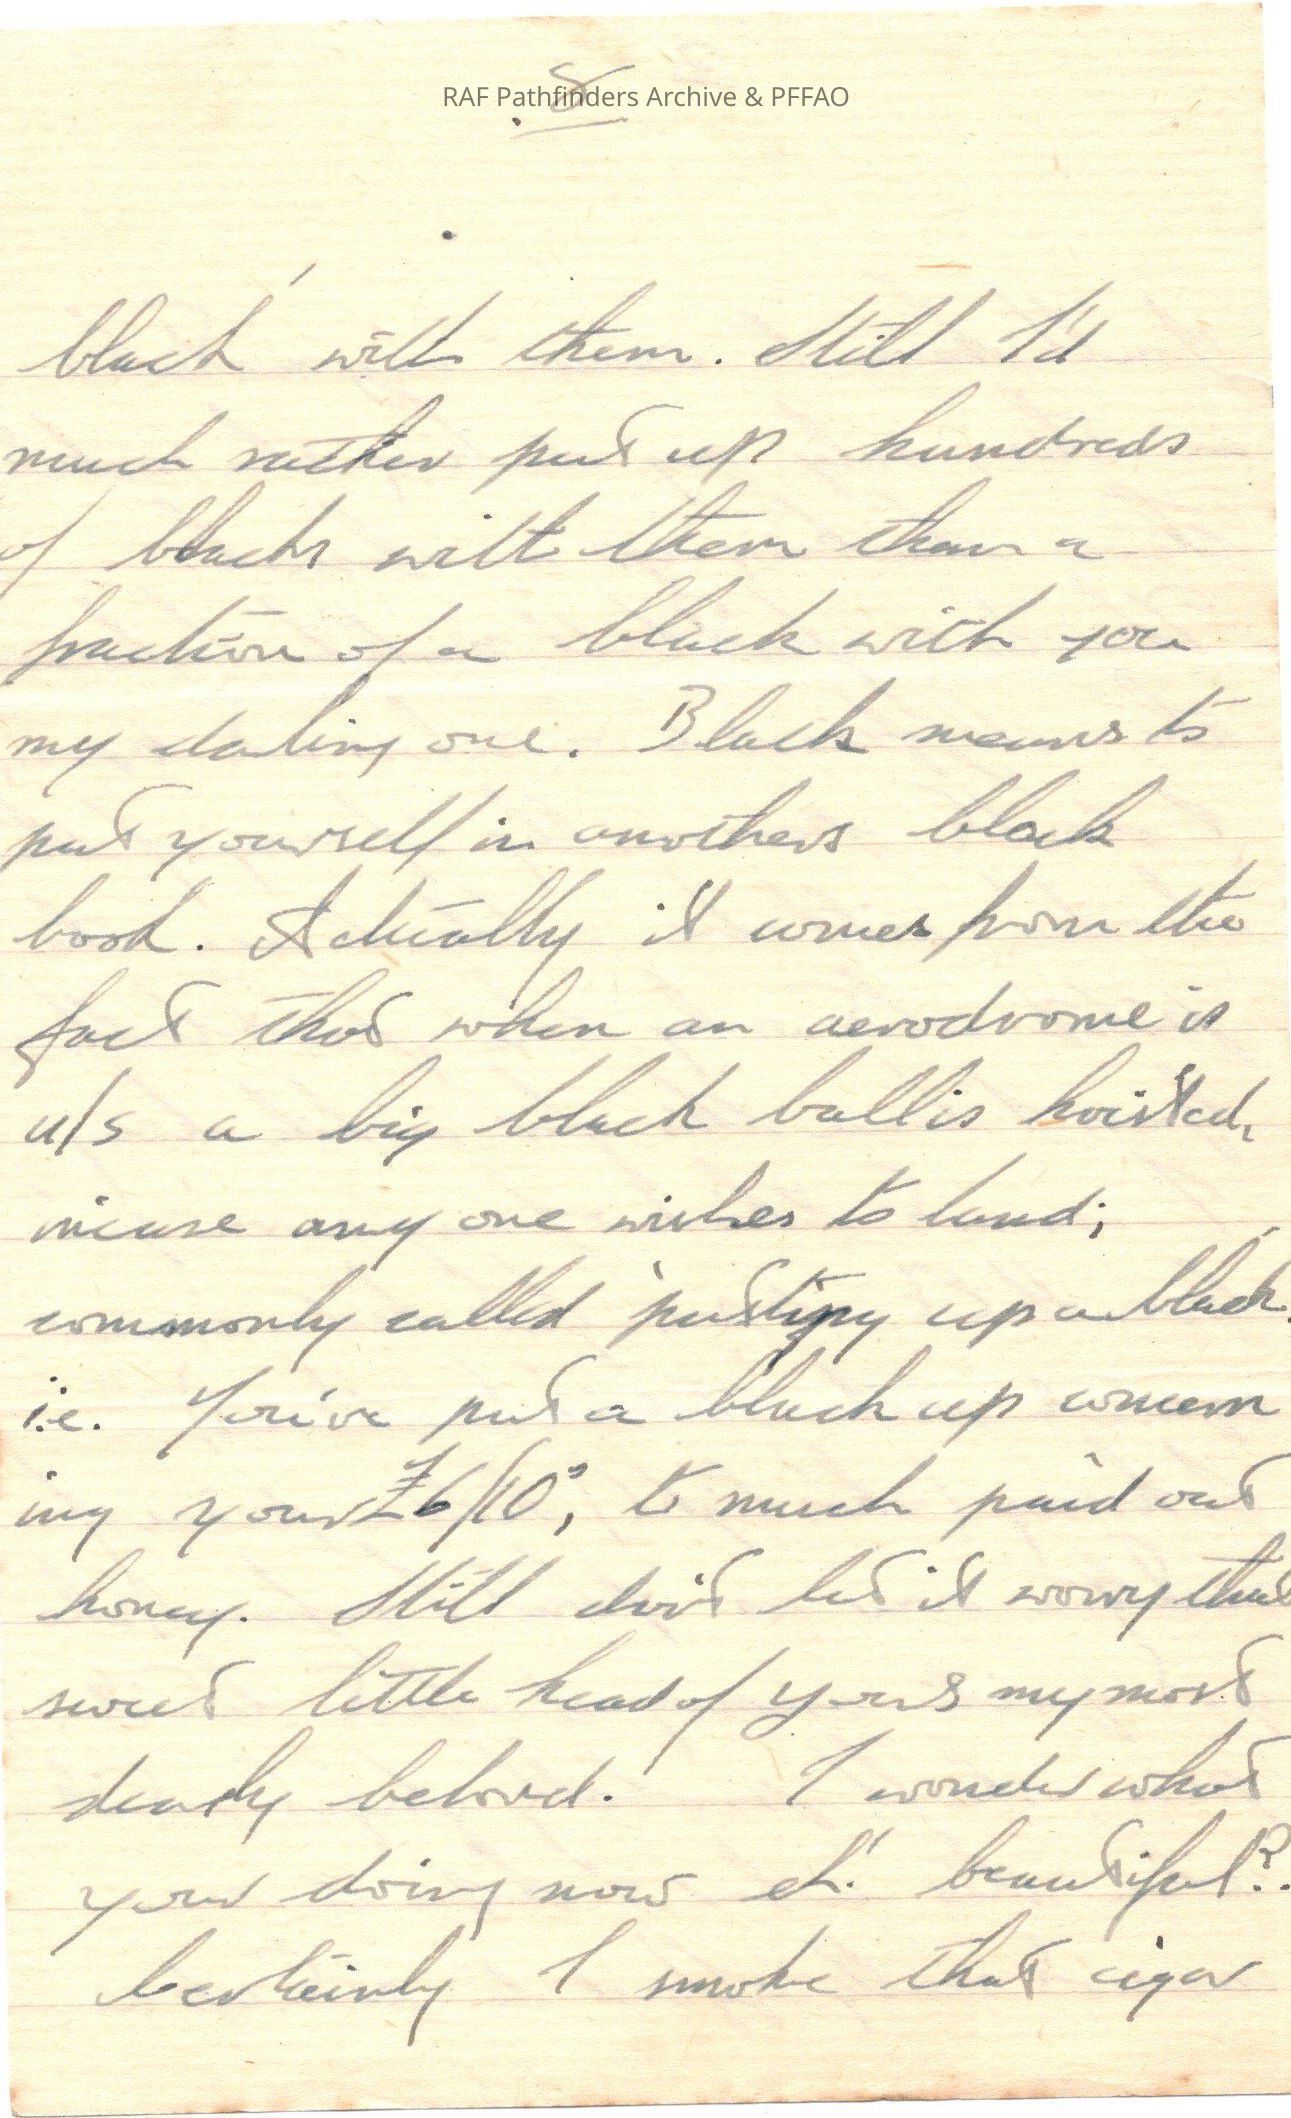 8
RAF Pathfinders Archive & PFFAO
black' with them. Still I'd
much rather put up hundreds
of blacks with them than a
fraction of a black with you
my darling one. Black means to
put yourself in anothers black
book. Actually it comes from the
fact that when an aerodrome is
u/s a big black ball is hoisted,
incase any one wishes to land;
commonly called 'putting up a black'.
i.e. You've put a black up concern
ing your £6/10', to much paid out
honey. Still don't let it worry that
sweet little head of yours my most
dearly beloved. I wonder what
your doing now eh! beautiful?.
Certainly I smoke that cigar